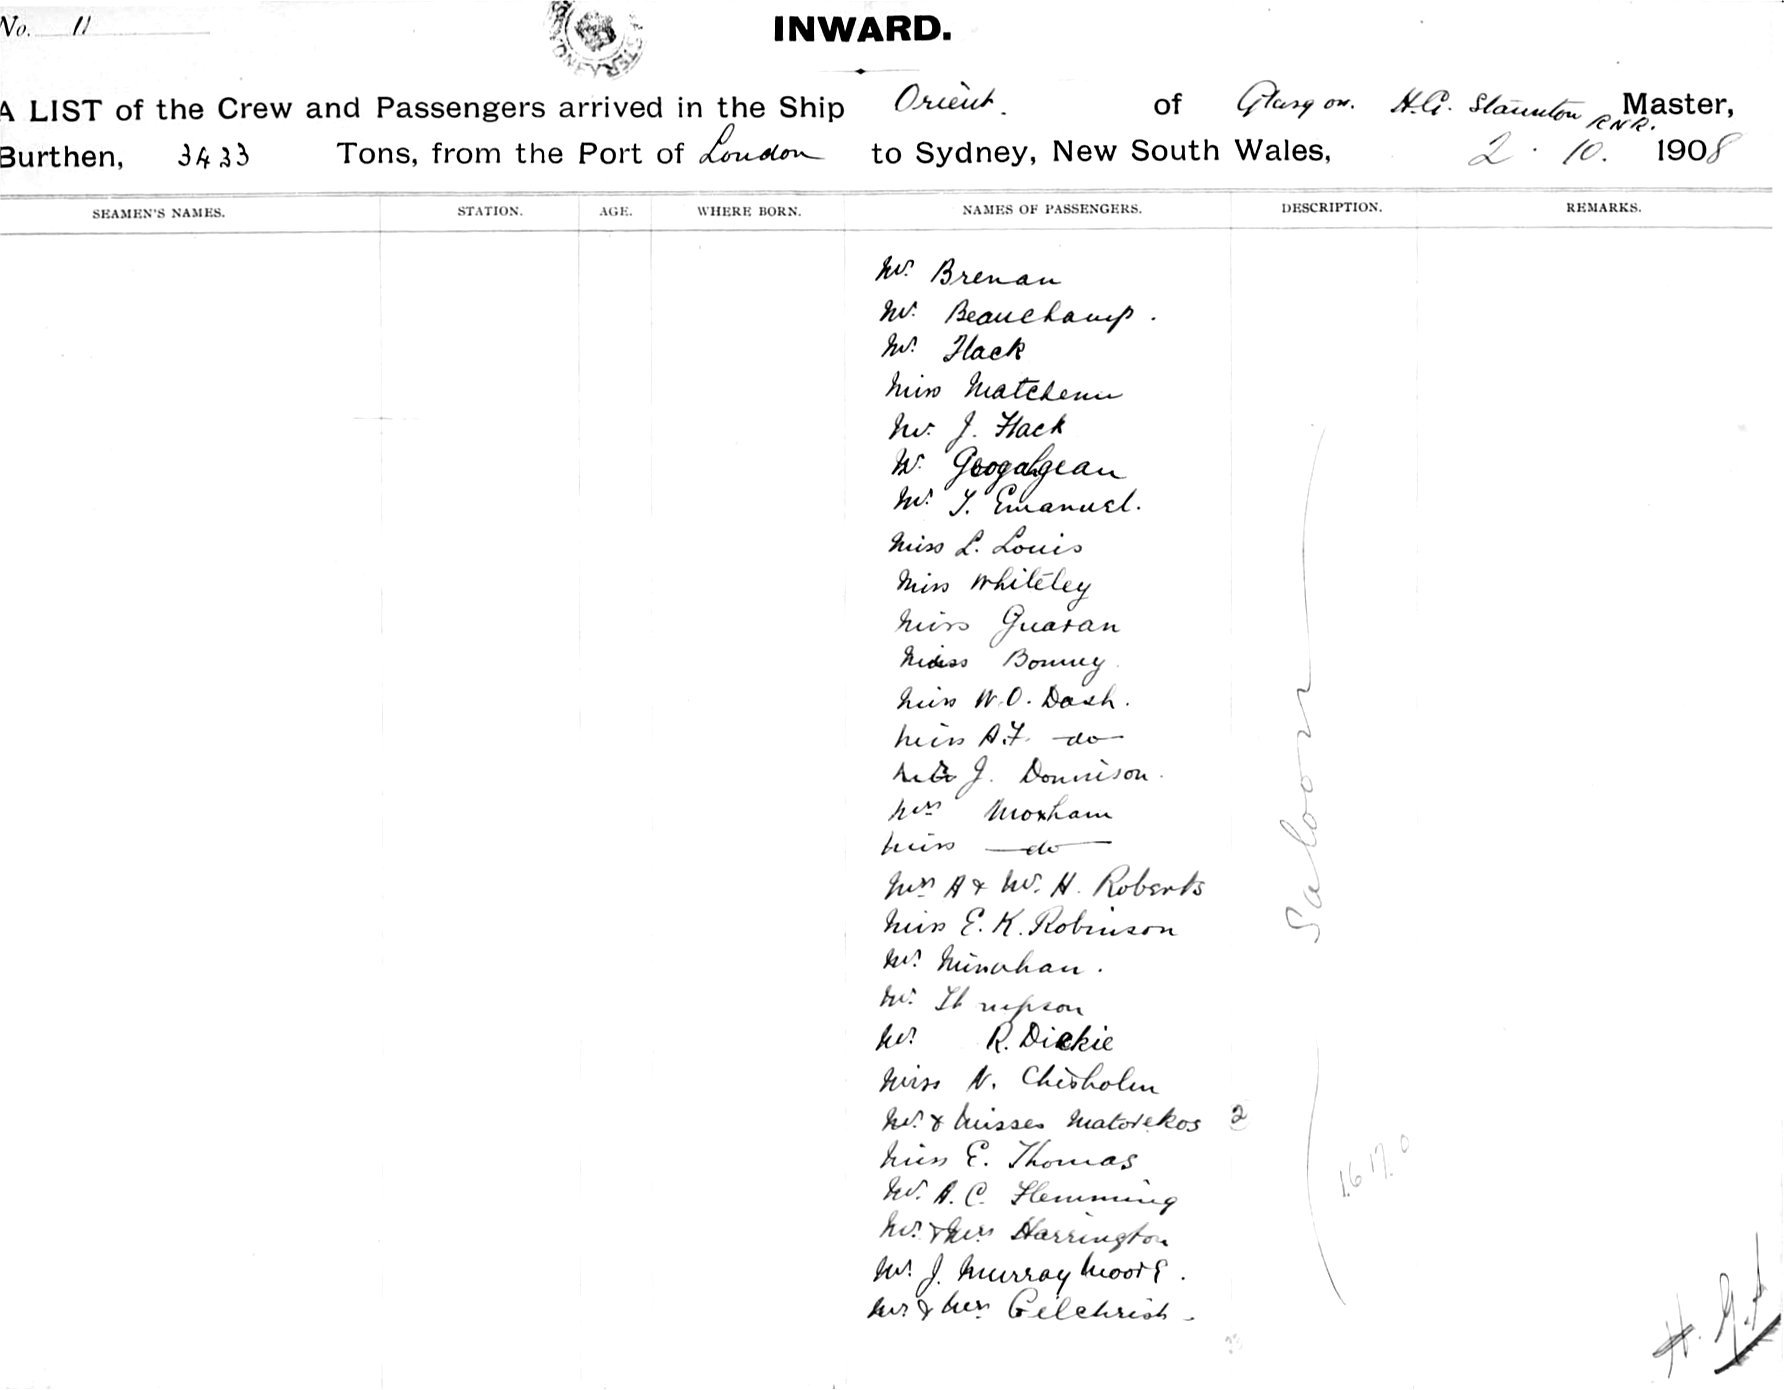 No. 11
INWARD.
A LIST of the Crew and Passengers arrived in the Ship Orient. of Glasgow. H.G. Staunton R.N.R. Master,
Burthen, 3433 Tons, from the Port of London to Sydney, New South Wales, 2. 10. 1908
SEAMEN'S NAMES. STATION. AGE. WHERE BORN. NAMES OF PASSENGERS. DESCRIPTION. REMARKS.
Mr. Brenan
Mr. Beauchamp.
Mr. Flack
Miss
Mr. J. Flack
Mr.
Mr. T. Emanuel.
Miss L. Louis
Miss Whiteley
Miss Guaran
Miss Bonney
Miss W.O. Dash.
Miss A.F. do
J. Donnison.
Mrs Moxham
Miss do
Mrs A & Mr. H. Roberts
Miss E. K. Robinson
Mr. Minahan.
Mr.
Mr. R. Dickie
Miss N. Chisholm
Mr. & Misses Matorekos 2
Miss E. Thomas
Mr. A. C. Flemming
Mr. & Mrs Harrington
Mr. J. Murray Moore.
Mr & Mrs Gilchrist.
Saloon